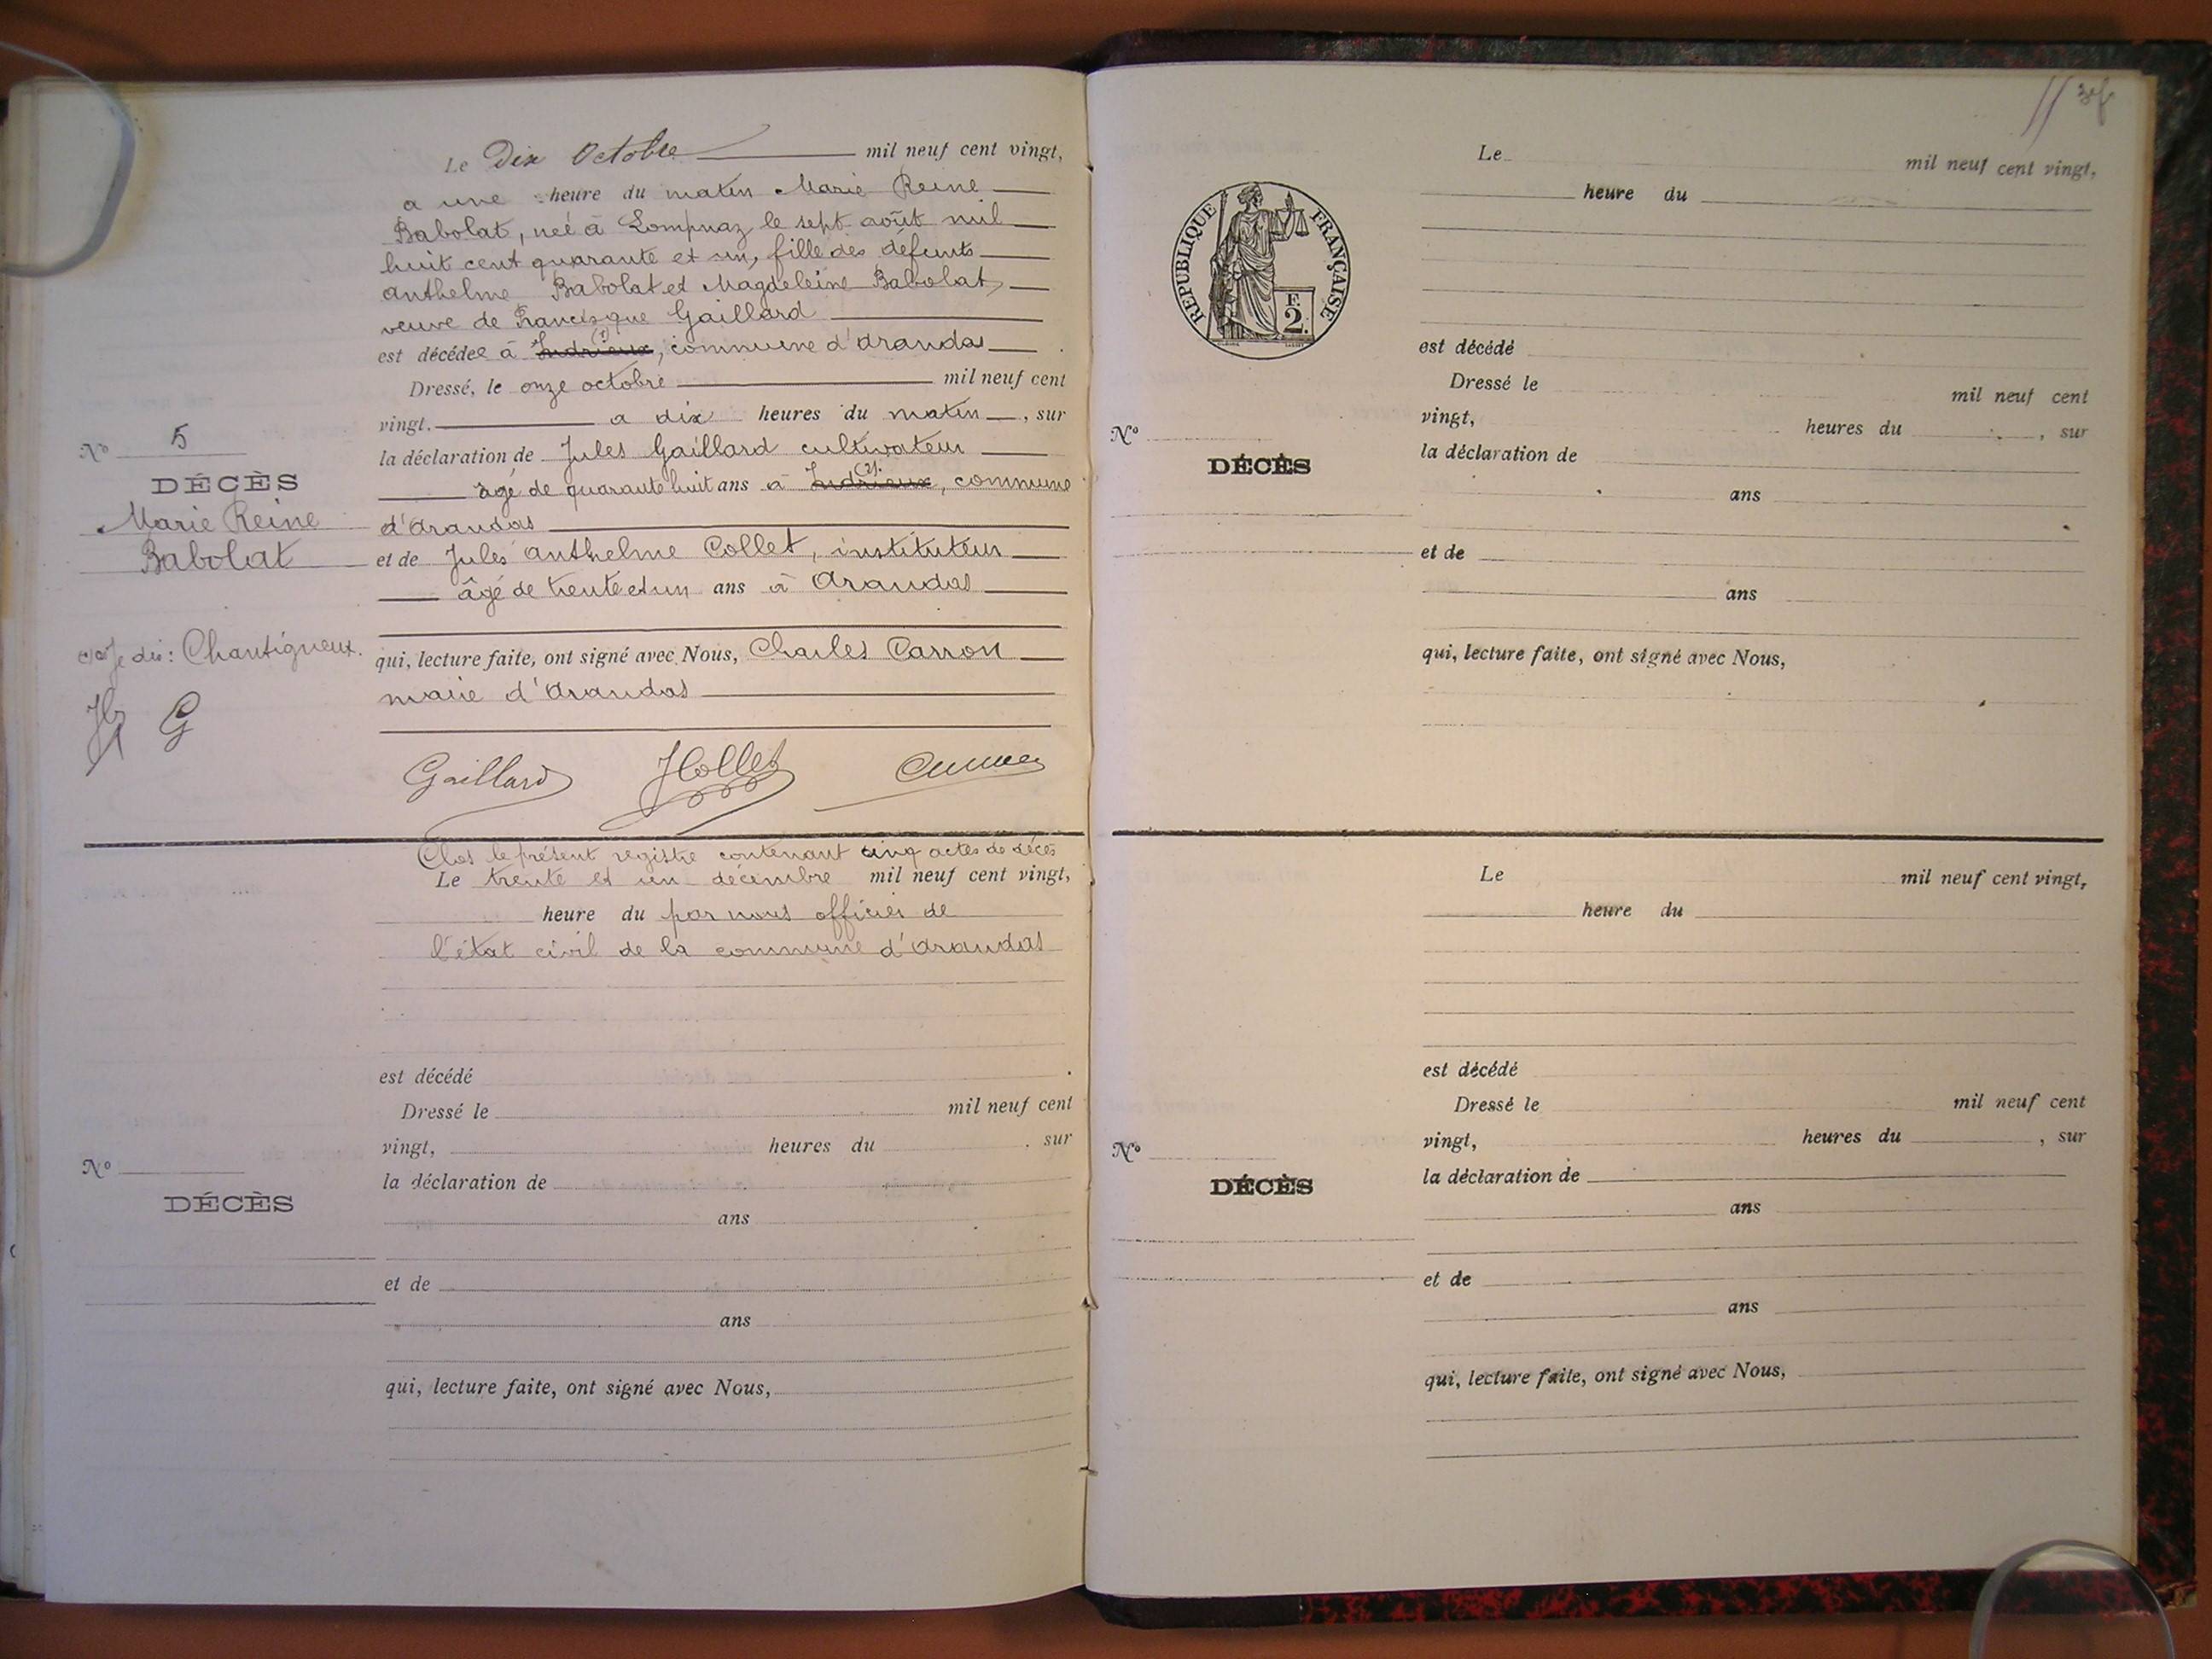 Le Dix Octobre mil neuf cent vingt,
a une heure du matin Marie Reine
Babolat, neé à Lompnaz le sept août mil
huit cent quarante et un, fille des défunts
Anthelme Babolat et Magdeleine Babolat,
veuve de Francisque Gaillard
est décédée à Indrieux (1), commune d'Arandas
Dressé, le onze octobre mil neuf cent
vingt. a dix heures du matin, sur
la déclaration de Jules Gaillard cultivateur
âgé de quarante huit ans à Indrieux (2), commune
d'Arandas
et de Jules Anthelme Collet, instituteur
âgé de trente et un ans à Arandas
qui, lecture faite, ont signé avec Nous, Charles Carron
maire d'Arandas
Gaillard JCollet
No 5
DÉCÈS
Marie Reine
Babolat
Je dis: Chantigneux.
G
Clos le présent registre contenant cinq actes de décès
Le trente et un décembre mil neuf cent vingt,
heure du par nous officier de
l'état civil de la commune d'Arandas
est décédé
Dressé le mil neuf cent
vingt, heures du , sur
la déclaration de
ans
et de
ans
qui, lecture faite, ont signé avec Nous,
No
DÉCÈS
REPUBLIQUE FRANÇAISE
F.
2.
Le mil neuf cent vingt,
heure du
est décédé
Dressé le mil neuf cent
vingt, heures du , sur
la déclaration de
ans
et de
ans
qui, lecture faite, ont signé avec Nous,
No
DÉCÈS
Le mil neuf cent vingt,
heure du
est décédé
Dressé le mil neuf cent
vingt, heures du , sur
la déclaration de
ans
et de
ans
qui, lecture faite, ont signé avec Nous,
No
DÉCÈS